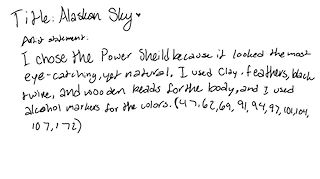 Title: Alaskan Sky
Artist statement:
I chose the Power Sheild because it looked the most
eye-catching, yet natural. I used Clay, feathers, black
twine, and wooden beads for the body, and I used
alcohol markers for the colors. (47, 62, 69, 91, 94, 97, 101, 104,
107, 172)